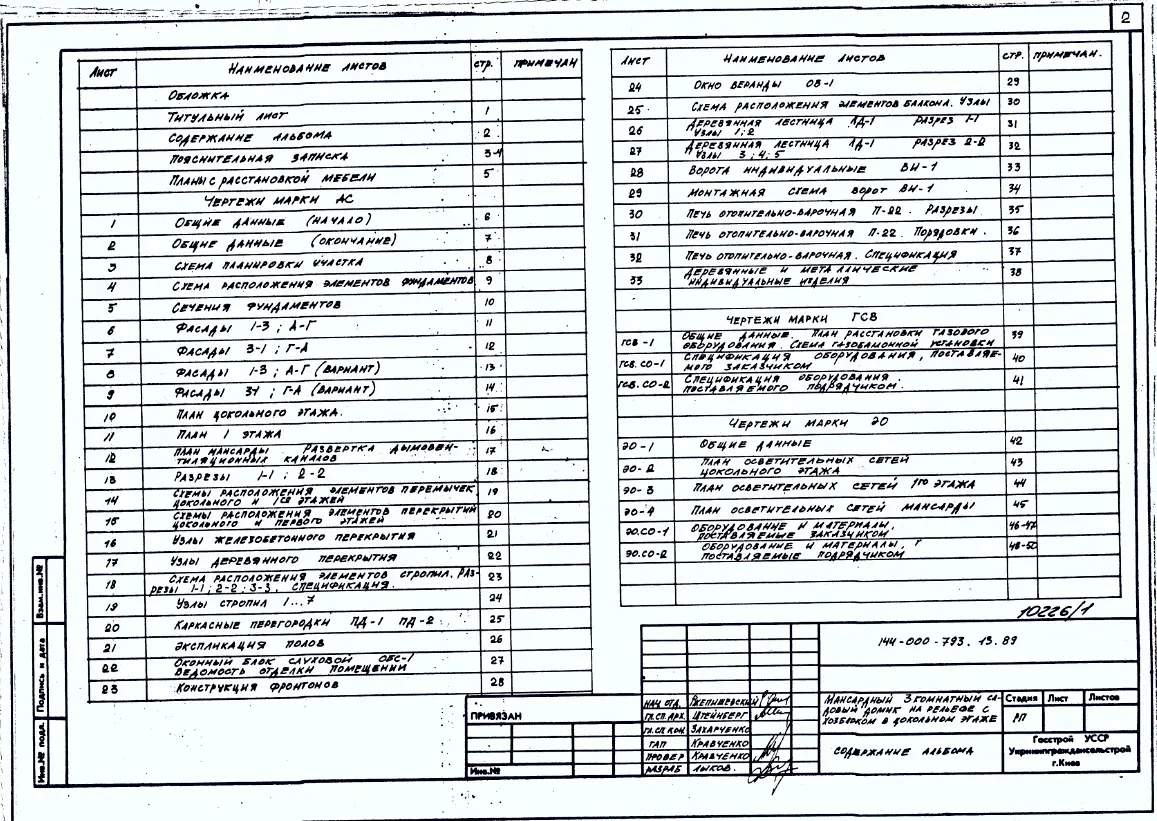 2
Лист Наименование листов стр. примечан
Обложка
Титульный лист 1
Содержание альбома 2
Пояснительная записка 3-4
Планы с расстановкой мебели 5
Чертежи марки АС
1 Общие данные (начало) 6
2 Общие данные (окончание) 7
3 Схема планировки участка 8
4 Схема расположения элементов фундаментов 9
5 Сечения фундаментов 10
6 Фасады 1-3 ; А-Г 11
7 Фасады 3-1 ; Г-А 12
8 Фасады 1-3 ; А-Г (вариант) 13
9 Фасады 3-1 ; Г-А (вариант) 14
10 План цокольного этажа. 15
11 План 1 этажа 16
12 План мансарды Развертка дымовен-
тиляционных каналов 17
13 Разрезы 1-1 ; 2-2 18
14 Схемы расположения элементов перемычек
цокольного и 1го этажей 19
15 Схемы расположения элементов перекрытий
цокольного и первого этажей 20
16 Узлы железобетонного перекрытия 21
17 Узлы деревянного перекрытия 22
18 Схема расположения элементов стропил. Раз-
резы 1-1 ; 2-2 ; 3-3. Спецификация. 23
19 Узлы стропил 1...7 24
20 Каркасные перегородки ПД-1 ПД-2 25
21 Экспликация полов 26
22 Оконный блок слуховой ОБС-1
Ведомость отделки помещений 27
23 Конструкция фронтонов 28
Лист Наименование листов стр. примечан.
24 Окно веранды ОВ-1 29
25 Схема расположения элементов балкона. Узлы 30
26 Деревянная лестница ЛД-1 Разрез 1-1
Узлы 1 ; 2 31
27 Деревянная лестница ЛД-1 Разрез 2-2
Узлы 3 ; 4 ; 5 32
28 Ворота индивидуальные ВИ-1 33
29 Монтажная схема ворот ВИ-1 34
30 Печь отопительно-варочная П-22. Разрезы 35
31 Печь отопительно-варочная П-22. Порядовки. 36
32 Печь отопительно-варочная. Спецификация 37
33 Деревянные и металлические
индивидуальные изделия 38
Чертежи марки ГСВ
ГСВ-1 Общие данные. План расстановки газового
оборудования. Схема газобалонной установки 39
ГСВ.СО-1 Спецификация оборудования, поставляе-
мого заказчиком 40
ГСВ.СО-2 Спецификация оборудования.
поставляемого подрядчиком 41
Чертежи марки ЭО
ЭО-1 Общие данные 42
ЭО-2 План осветительных сетей
цокольного этажа 43
ЭО-3 План осветительных сетей 1го этажа 44
ЭО-4 План осветительных сетей мансарды 45
ЭО.СО-1 Оборудование и материалы,
поставляемые заказчиком 46-47
ЭО.СО-2 Оборудование и материалы,
поставляемые подрядчиком 48-50
10226/1
144-000-793.13.89
Нач. отд.
Гл.сп.арх. Штейнберг
Гл.сп.кон. Захарченко
ГАП Кравченко
Провер Кравченко
Разраб Лыков.
Мансардный 3 комнатный са-
довый домик на рельефе с
хозблоком в цокольном этаже
Стадия Лист Листов
РП
Содержание альбома
Госстрой УССР
Укрниипграждансельстрой
г. Киев
ПРИВЯЗАН
Инв.№
Взам.инв.№
Подпись и дата
Инв.№ подл.